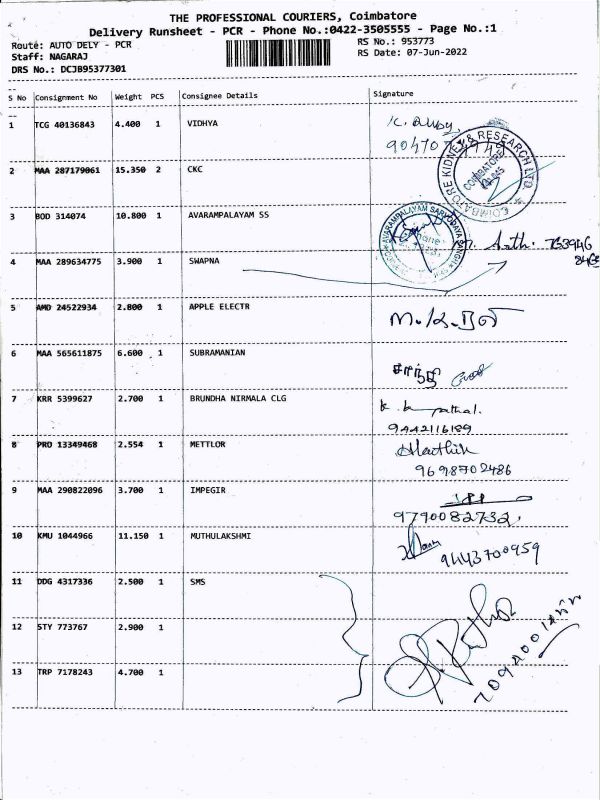 THE PROFESSIONAL COURIERS, Coimbatore
Delivery Runsheet - PCR - Phone No.:0422-3505555 - Page No.:1
Route: AUTO DELY - PCR
RS No.: 953773
Staff: NAGARAJ
RS Date: 07-Jun-2022
DRS No.: DCJB95377301
S No Consignment No Weight PCS Consignee Details Signature
1 TCG 40136843 4.400 1 VIDHYA
2 MAA 287179061 15.350 2 CKC
COIMBATORE KIDNEY & RESEARCH LTD
COIMBATORE
3 BOD 314074 10.800 1 AVARAMPALAYAM SS
AVARAMPALAYAM SARVODAYA SANGH
4 MAA 289634775 3.900 1 SWAPNA
5 AMD 24522934 2.800 1 APPLE ELECTR
6 MAA 565611875 6.600 1 SUBRAMANIAN
சாந்தி
7 KRR 5399627 2.700 1 BRUNDHA NIRMALA CLG
9442116189
8 PRO 13349468 2.554 1 METTLOR
9698702486
9 MAA 290822096 3.700 1 IMPEGIR
9790082732
10 KMU 1044966 11.150 1 MUTHULAKSHMI
9443700959
11 DDG 4317336 2.500 1 SMS
12 STY 773767 2.900 1
13 TRP 7178243 4.700 1